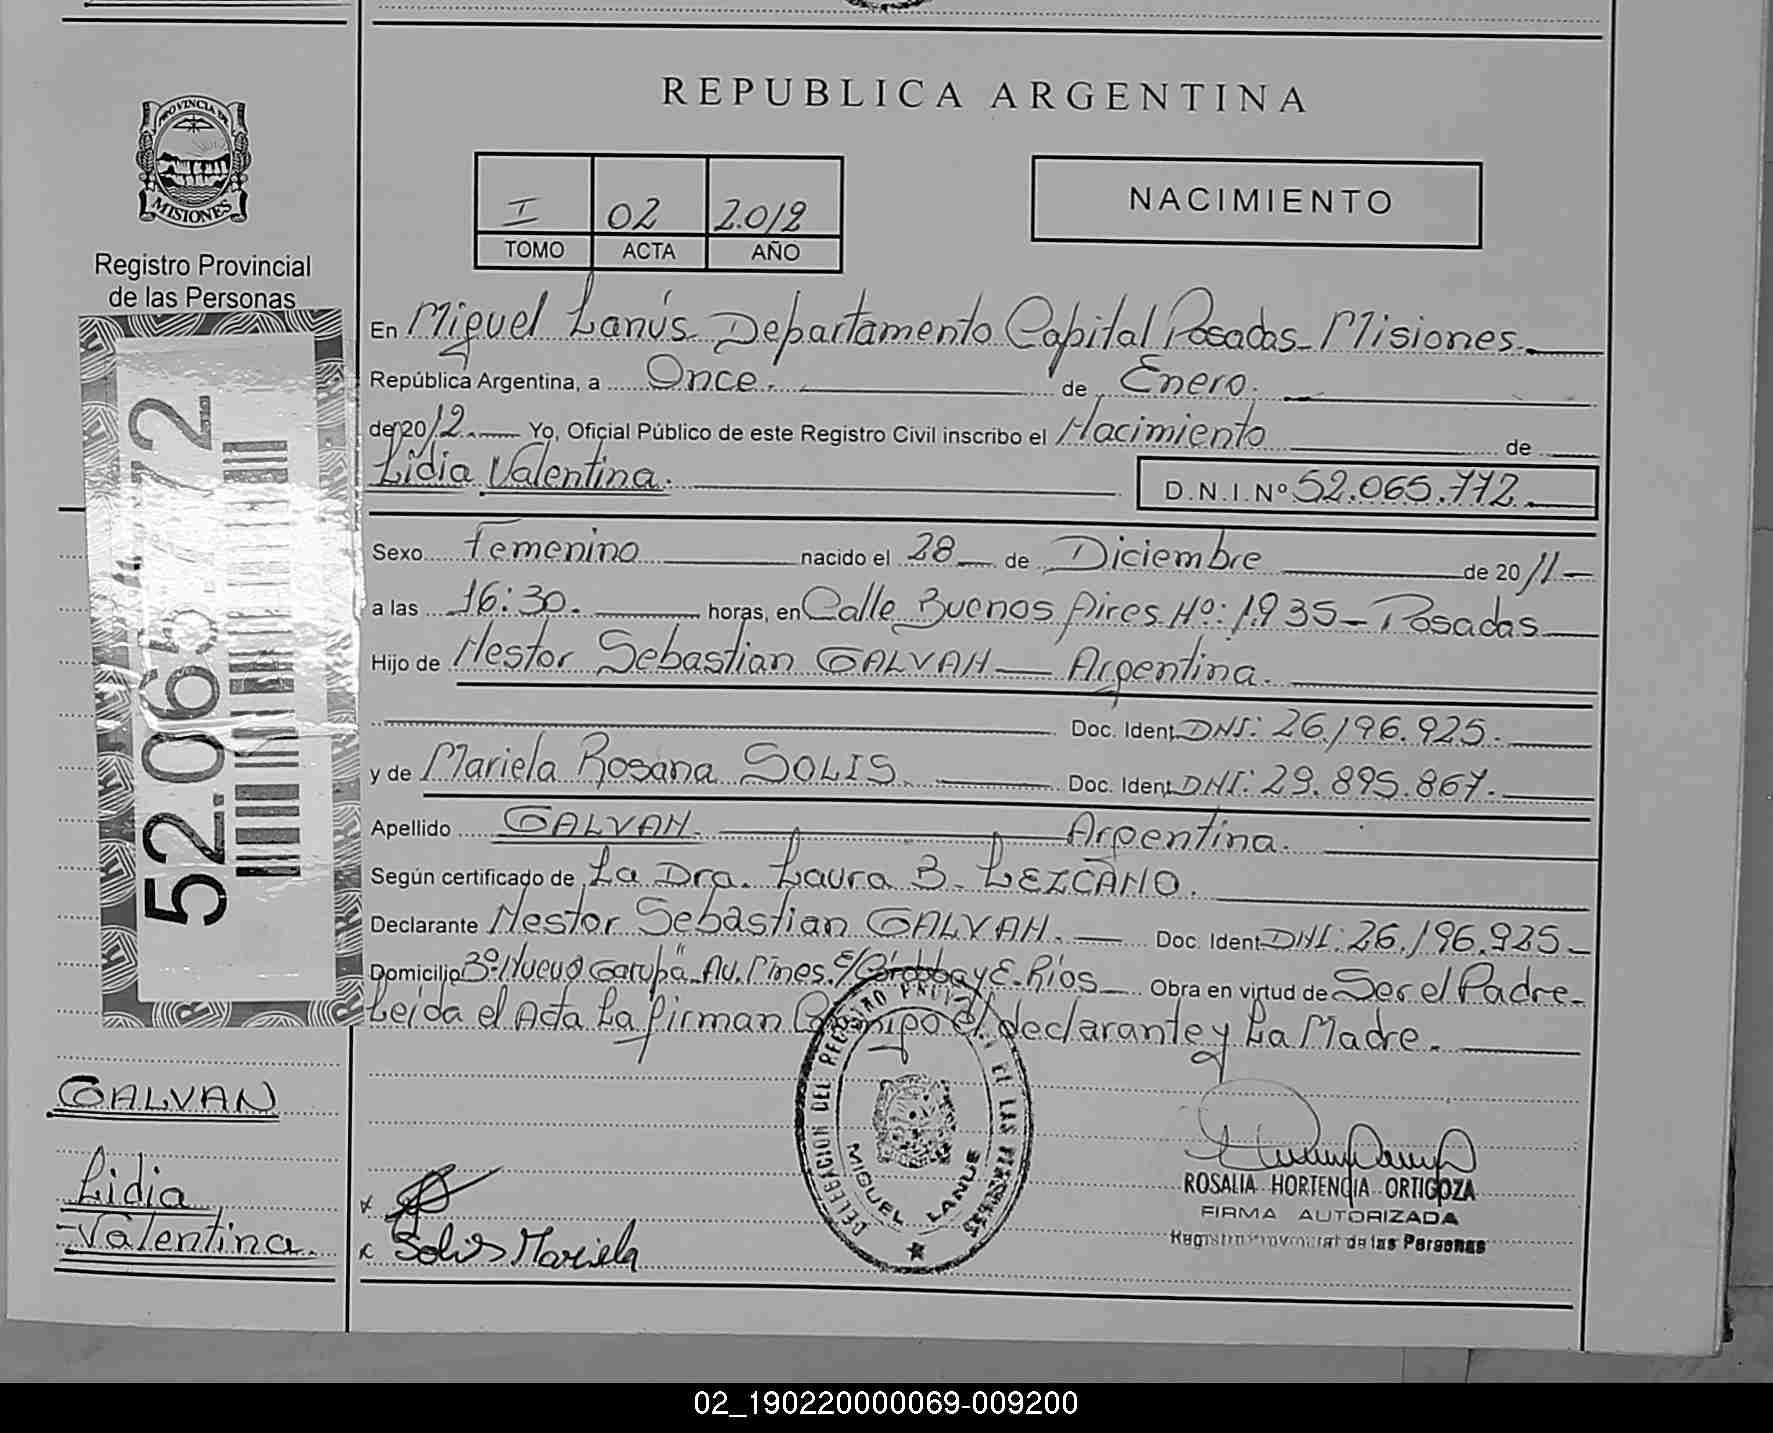 REPUBLICA ARGENTINA
PROVINCIA DE
MISIONES
Registro Provincial
de las Personas
I 02 2.012
TOMO ACTA AÑO
NACIMIENTO
52.065.772
En Miguel Lanús Departamento Capital Posadas Misiones.
República Argentina, a Once. de Enero.
de 2012. Yo, Oficial Público de este Registro Civil inscribo el Nacimiento de
Lidia Valentina.
D.N.I.Nº 52.065.772
Sexo Femenino nacido el 28 de Diciembre de 2011
a las 16:30. horas, en Calle Buenos Aires Nº: 1.935 Posadas
Hijo de Nestor Sebastian GALVAN Argentina.
Doc. Ident. DNI: 26.196.925.
y de Mariela Rosana SOLIS. Doc. Ident. DNI: 29.895.867.
Apellido GALVAN. Argentina.
Según certificado de La Dra. Laura B. LEZCANO.
Declarante Nestor Sebastian GALVAN. Doc. Ident. DNI: 26.196.925
Domicilio Bº. Nuevo Garupá" Av. Pines. e/ Córdoba y E. Ríos Obra en virtud de Ser el Padre.
Leida el Acta La firman Conmigo el declarante y La Madre.
GALVAN
Lidia
Valentina.
DELEGACION DEL REGISTRO PROVINCIAL DE LAS PERSONAS
MIGUEL LANUS
x
x Solis Mariela
ROSALIA HORTENCIA ORTIGOZA
FIRMA AUTORIZADA
Registro Provincial de las Personas
02_190220000069-009200